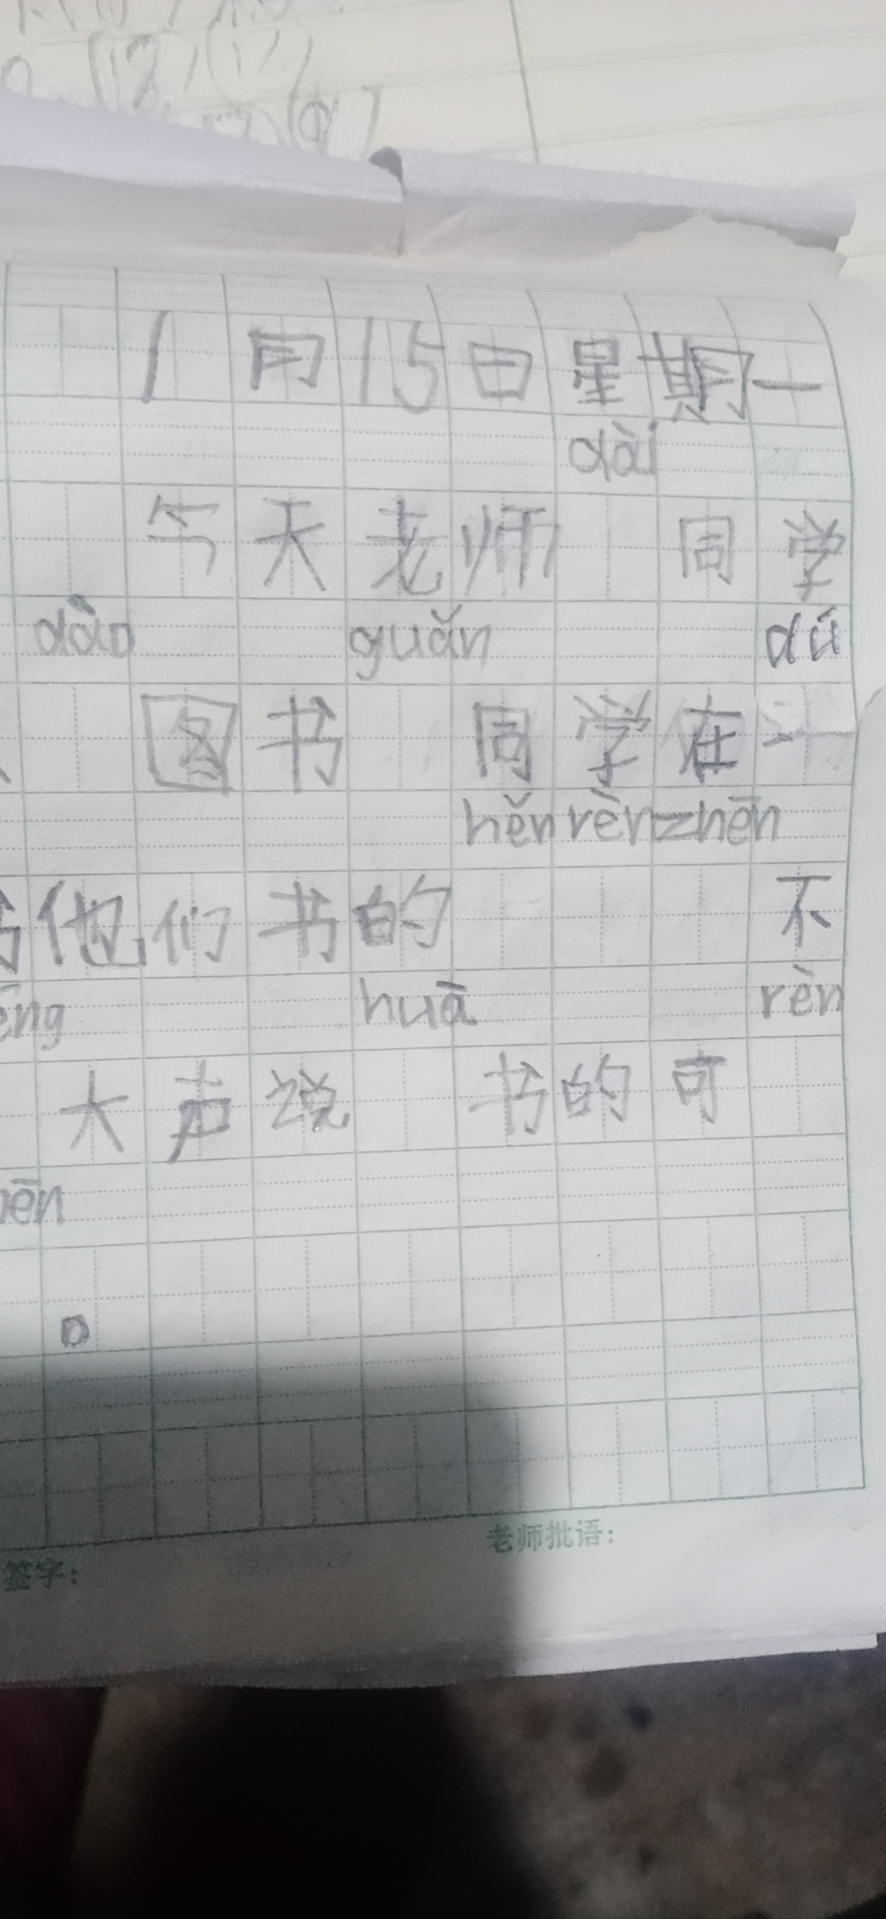 1月15日星期一
dài
今天老师 同学
dào guǎn dú
图书 同学在
hěn rèn zhēn
他们 书的 不
huā rèn
大声说 书的可
。
签字：
老师批语：